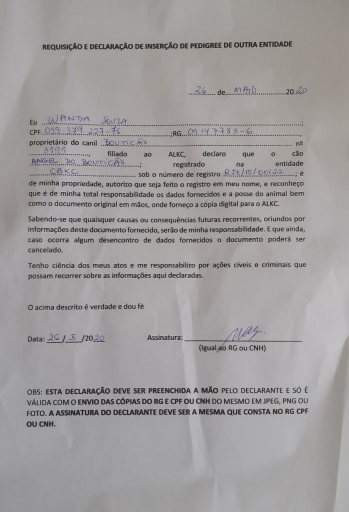 REQUISIÇÃO E DECLARAÇÃO DE INSERÇÃO DE PEDIGREE DE OUTRA ENTIDADE
26 de MAIO 2020
Eu WANDA SOUZA ;
CPF 039 379 227-76 ;RG. 09147783-6
proprietário do canil BOUTICÃO nº
, filiado ao ALKC, declaro que o cão
ANGEL DO BOUTICÃO ; registrado na entidade
CBKC sob o número de registro RJX/15/00122 ; é
de minha propriedade, autorizo que seja feito o registro em meu nome, e reconheço
que é de minha total responsabilidade os dados fornecidos e a posse do animal bem
como o documento original em mãos, onde forneço a cópia digital para o ALKC.
Sabendo-se que quaisquer causas ou consequências futuras recorrentes, oriundos por
informações deste documento fornecido, serão de minha responsabilidade. E que ainda,
caso ocorra algum desencontro de dados fornecidos o documento poderá ser
cancelado.
Tenho ciência dos meus atos e me responsabilizo por ações cíveis e criminais que
possam recorrer sobre as informações aqui declaradas.
O acima descrito é verdade e dou fé
Data: 26 / 5 /2020 Assinatura:
(Igual ao RG ou CNH)
OBS: ESTA DECLARAÇÃO DEVE SER PREENCHIDA A MÃO PELO DECLARANTE E SÓ É
VÁLIDA COM O ENVIO DAS CÓPIAS DO RG E CPF OU CNH DO MESMO EM JPEG, PNG OU
FOTO. A ASSINATURA DO DECLARANTE DEVE SER A MESMA QUE CONSTA NO RG CPF
OU CNH.